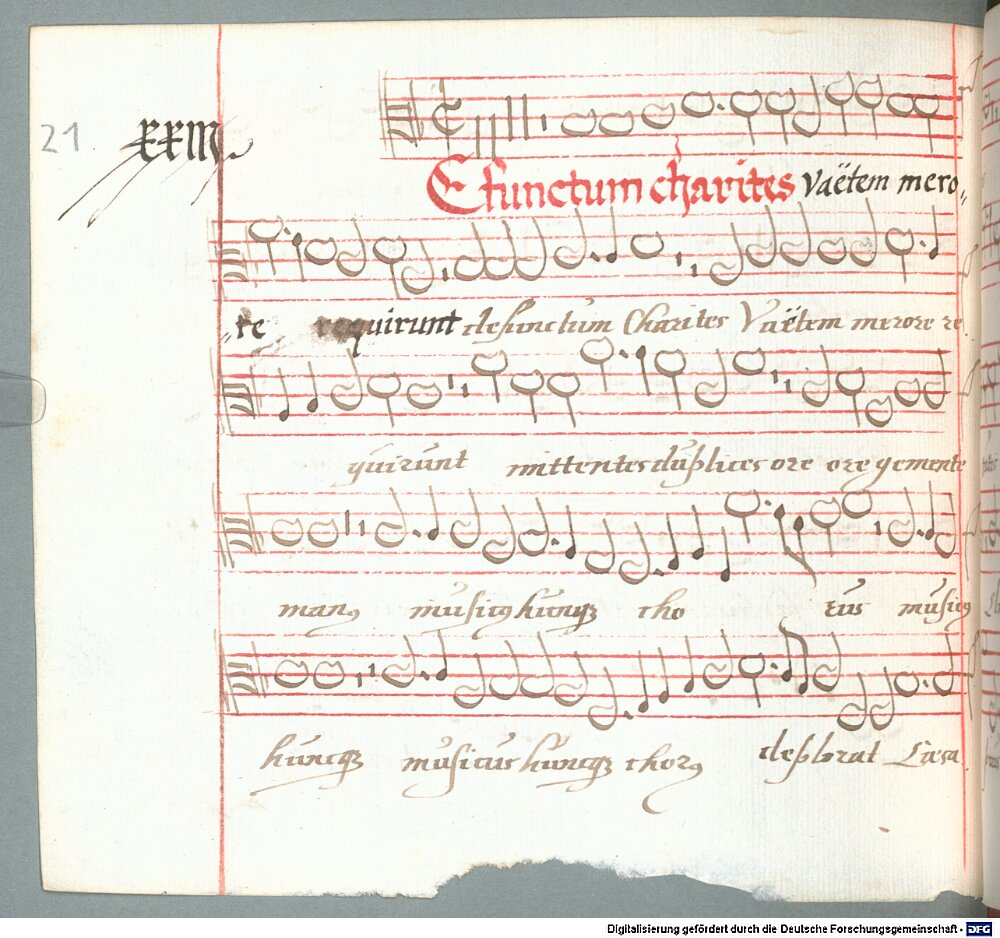 21.
XXIII.
Efunctum charites Vaëtem mero„
„re requirunt defunctum Charites Vaëtem merore re
quirunt mittentes duplices ore ore gemente
manꝰ musicꝰ huncqꝫ cho rus musicꝰ
huncqꝫ musicus huncqꝫ chorꝰ deplorat Laesa
Digitalisierung gefördert durch die Deutsche Forschungsgemeinschaft - DFG